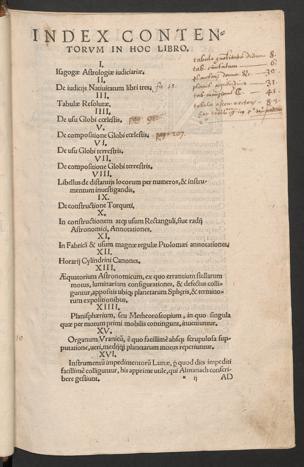 INDEX CONTEN-
TORVM IN HOC LIBRO.
I.
Isagogæ Astrologiæ iudiciariæ,
II.
De iudicijs Natiuitatum libri tres,
III.
Tabulæ Resolutæ,
IIII.
De usu Globi cœlestis,
V.
De compositione Globi cœlestis,
VI.
De usu Globi terrestris,
VII.
De compositione Globi terrestris,
VIII.
Libellus de distantijs locorum per numeros, & instru-
mentum inuestigandis,
IX.
De constructione Torqueti,
X.
In constructionem atq; usum Rectanguli, siue radij
Astronomici, Annotationes,
XI.
In Fabricā & usum magnæ regulæ Ptolomæi annotationes,
XII.
Horarij Cylindrini Canones,
XIII.
Æquatorium Astronomicum, ex quo errantium stellarum
motus, luminarium configurationes, & defectus colli-
guntur, appositis ubiq; planetarum Sphæris, & termino-
rum expositionibus,
XIIII.
Planisphærium, seu Metheoroscopium, in quo singula
quæ per motum primi mobilis contingunt, inueniuntur,
XV.
Organum Vranicū, è quo facillimè absq; scrupulosa sup-
putatione, ueri, medijq; planetarum motus reperiuntur,
XVI.
Instrumentū impedimentorū Lunæ, p̄ quod dies impediti
facillimè colliguntur, his apprime utile, qui Almanach conscri-
bere gestiunt,
* ij AD